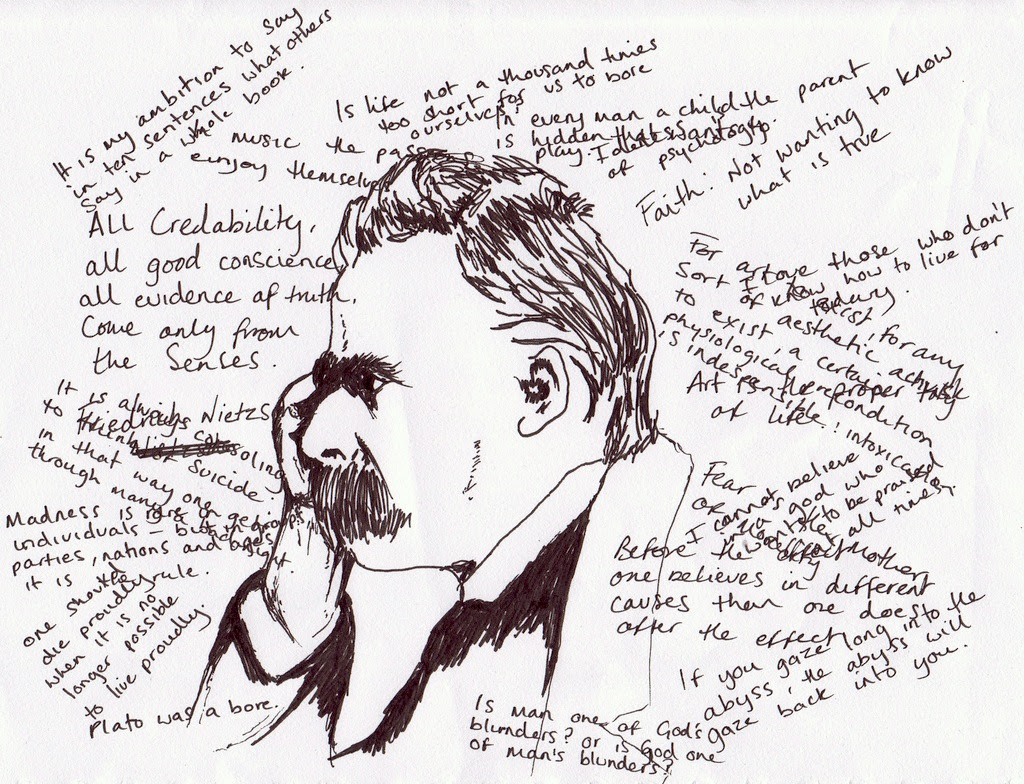 It is my ambition to say
in ten sentences what others
say in a whole book.
Is life not a thousand times
too short for us to bore
ourselves?
music the pass
enjoy themselve
In every man a child
is hidden that wants
play.
the parent
of psychology.
Faith: Not wanting to know
what is true
All Credability,
all good conscience
all evidence of truth,
Come only from
the Senses.
For art
Sort
to exist,
for any
aesthetic activity
to exist, a certain
physiological
is indespensible
intoxication
I love those who don't
know how to live for
today.
Art is the proper task
of life!
It is always
Friedrich Nietzs
to think
Suicide:
in that way one
through many
night
Madness is rare in
individuals – but in groups,
parties, nations and ages
it is rule.
one should
die proudly
when it is no
longer possible
to live proudly.
Plato was a bore.
Fear
of
Mother
I cannot believe
in a god who
to be praised
all times.
Before the effect
one believes in different
causes than one does
after the effect
If you gaze long into the
abyss, the abyss will
gaze back into you.
Is man one of God's
blunders? or is God one
of man's blunders?